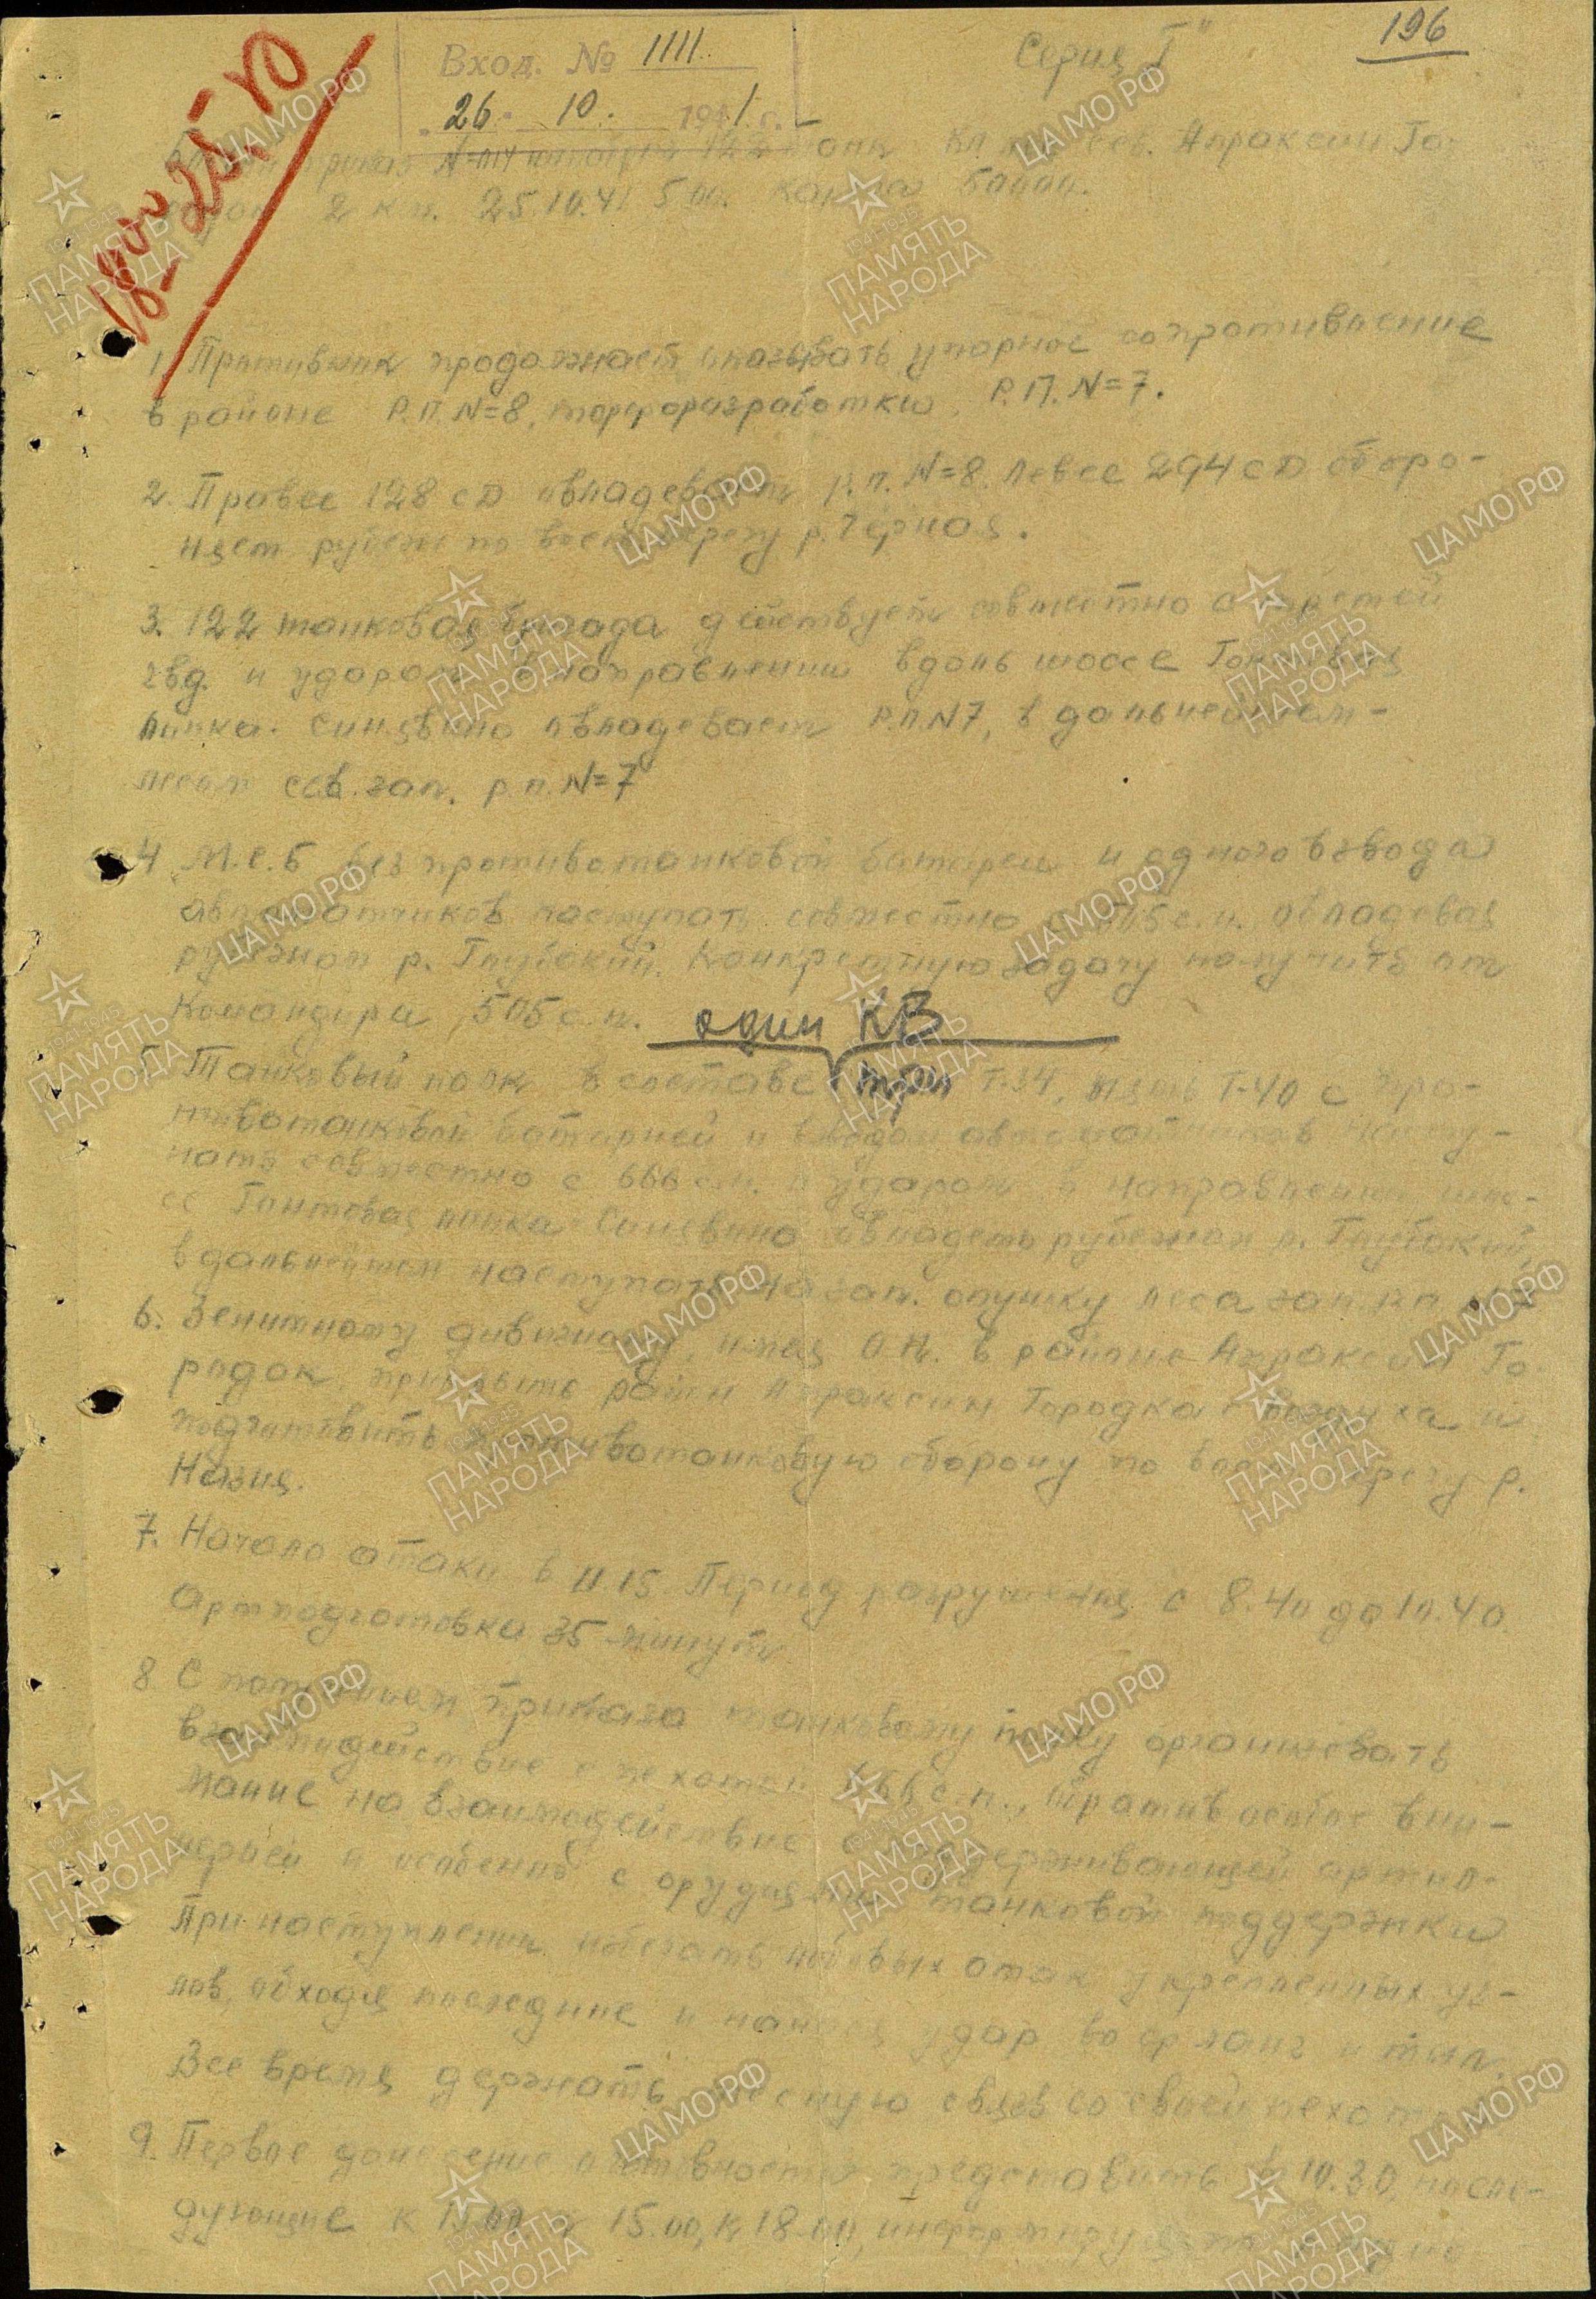 196
Серия "Г"
Вход. № 1111
26 10. 1941 г.
18-00 25.10
приказ штаба 122 Апраксин Го-
2 км. 25.10.41. 5.00. карта
1. Противник продолжает оказывать упорное сопротивление
в районе Р.П. N=8, торфоразработки, Р.П. N=7.
2. Правее 128 СД овладевает р.п. N=8. Левее 294 СД оборо-
няет рубеж по вост. берегу р. Черная.
3. 122 танковая бригада действует совместно с третей
гвд. и ударом в направлении вдоль шоссе Гонтовая
липка. Синявино овладевает Р.П. N7, в дальнейшем -
лесом сев. зап. р.п. N=7
4 М.С.Б без противотанковой батареи и одного взвода
автоматчиков наступать совместно с 505 с.п. овладевая
рубежом р. Глубокий. Конкретную задачу получить от
командира 505 с.п.
один КВ
5. Танковый полк в составе три Т-34, пять Т-40 с про-
тивотанковой батареей и взводом автоматчиков насту-
пать совместно с 666 с.п. и ударом в направлении шос-
се Гонтовая липка Синявино овладеть рубежом р. Глубокий,
в дальнейшем наступать на зап. опушку леса зап. рп N7
6. Зенитному дивизиону, имея О.П. в районе Апраксин Го-
родок, прикрыть район Апраксин Городка с воздуха и
подготовить противотанковую оборону по вост. берегу р.
Назия.
7. Начало атаки в 11.15. Период разрушения с 8.40 до 10.40
Артподготовка 35 минут
8. С получением приказа танковому полку организовать
взаимодействие с пехотой 666 с.п., обратив особое вни-
мание на взаимодействие с поддерживающей артил-
лерией и особенно с орудиями танковой поддержки
При наступлении избегать лобовых атак укрепленных уз-
лов, обходя последние и нанося удар во фланг и тыл.
Все время держать тесную связь со своей пехотой
9. Первое донесение о готовности представить в 10.30, после-
дующие к 15.00, к 18.00, информируя
ЦА МО РФ
1941-1945
ПАМЯТЬ
НАРОДА